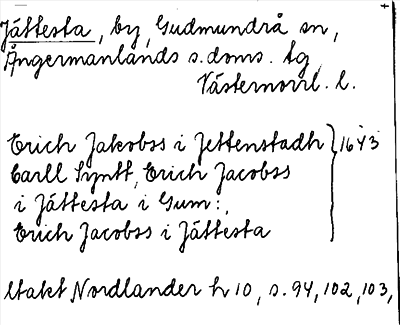 Jättesta, by, Gudmundrå sn,
Ångermanlands s. doms. tg
Västernorrl. l.
Erich Jakobss i Jettenstadh } 1643
Carll Syntt, Erich Jacobss
i Jättesta i Gum:,
Erich Jacobss i Jättesta
Utakt Nordlander h 10, s. 94, 102, 103,